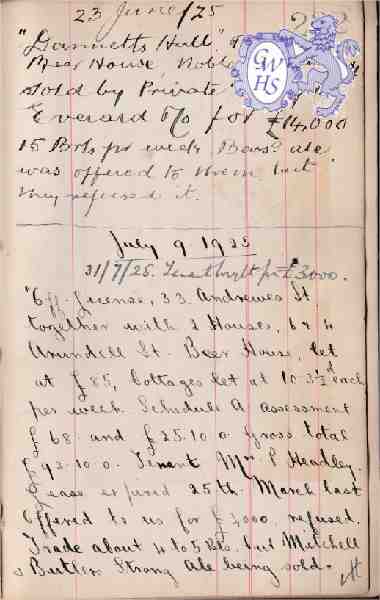 23 June/25
"Dannetts Hall"
Beer House, Noble
sold by Private
Everard &Co for £14,000
15 Brls per week Bass' ale
was offered to them but
they refused it.
GWHS
July 9 1925
31/7/25. Tenant bought for £3000.
"Off-license, 33 Andrewes St
together with 2 Houses, 6 & 4
Arundell St. Beer House, let
at £85, Cottages let at 10·3½d each
per week. Schedule A assessment
£68 and £25.10.0 Gross total
£93.10.0. Tenant Mrs P Headley.
Lease expired 25th March last
Offered to us for £4000, refused.
Trade about 4 to 5 Bls. but Mitchell
& Butlers Strong Ale being sold.